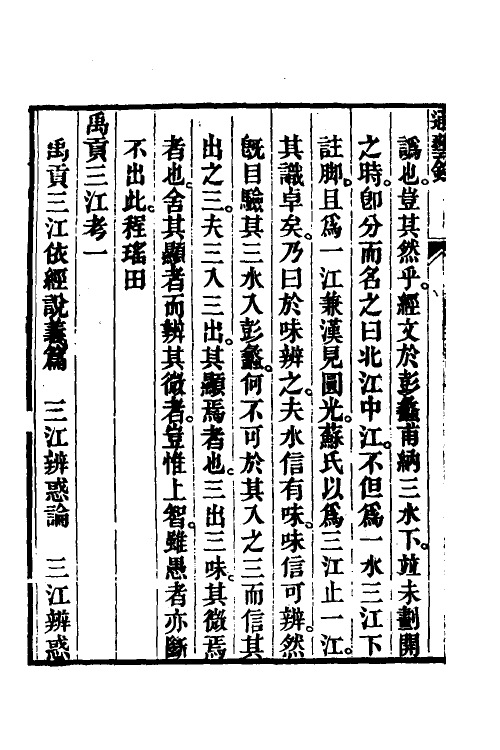 通藝錄
譌也。豈其然乎。經文於彭蠡甫納三水下。竝未劃開
之時。卽分而名之曰北江中江。不但爲一水三江下
註脚。且爲一江兼漢見圓光。蘇氏以爲三江止一江。
其識卓矣。乃曰於味辨之。夫水信有味。味信可辨。然
旣目驗其三水入彭蠡。何不可於其入之三而信其
出之三。夫三入三出。其顯焉者也。三出三味。其微焉
者也。舍其顯者而辨其微者。豈惟上智。雖愚者亦斷
不出此。程瑤田
禹貢三江考一
禹貢三江依經說義篇　三江辨惑論　三江辨惑